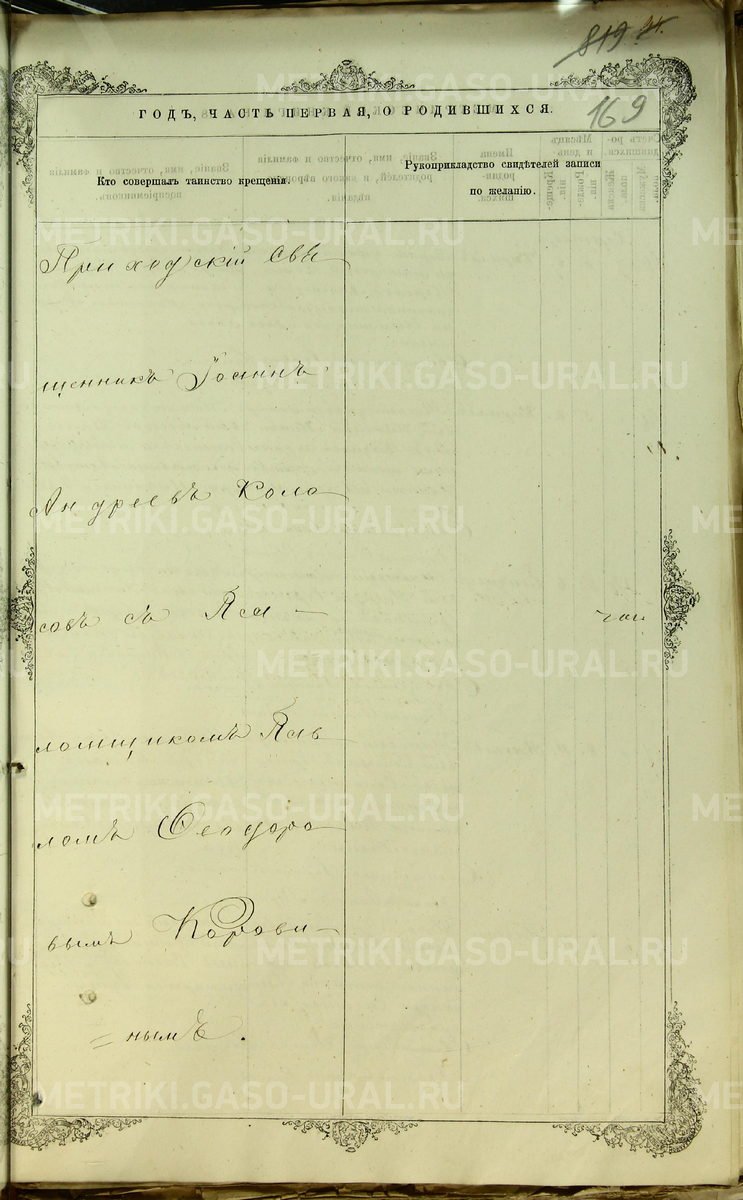 819
169
ГОДЪ, ЧАСТЬ ПЕРВАЯ, О РОДИВШИХСЯ.
Кто совершалъ таинство крещенія.
Рукоприкладство свидѣтелей записи
по желанію.
Приходскій Свя
щенникъ Іоаннъ
Андреевъ Коло
совъ съ Пса-
ломщикомъ Пав
ломъ Ѳеодоро
вымъ Корови-
=нымъ.
METRIKI.GASO-URAL.RU